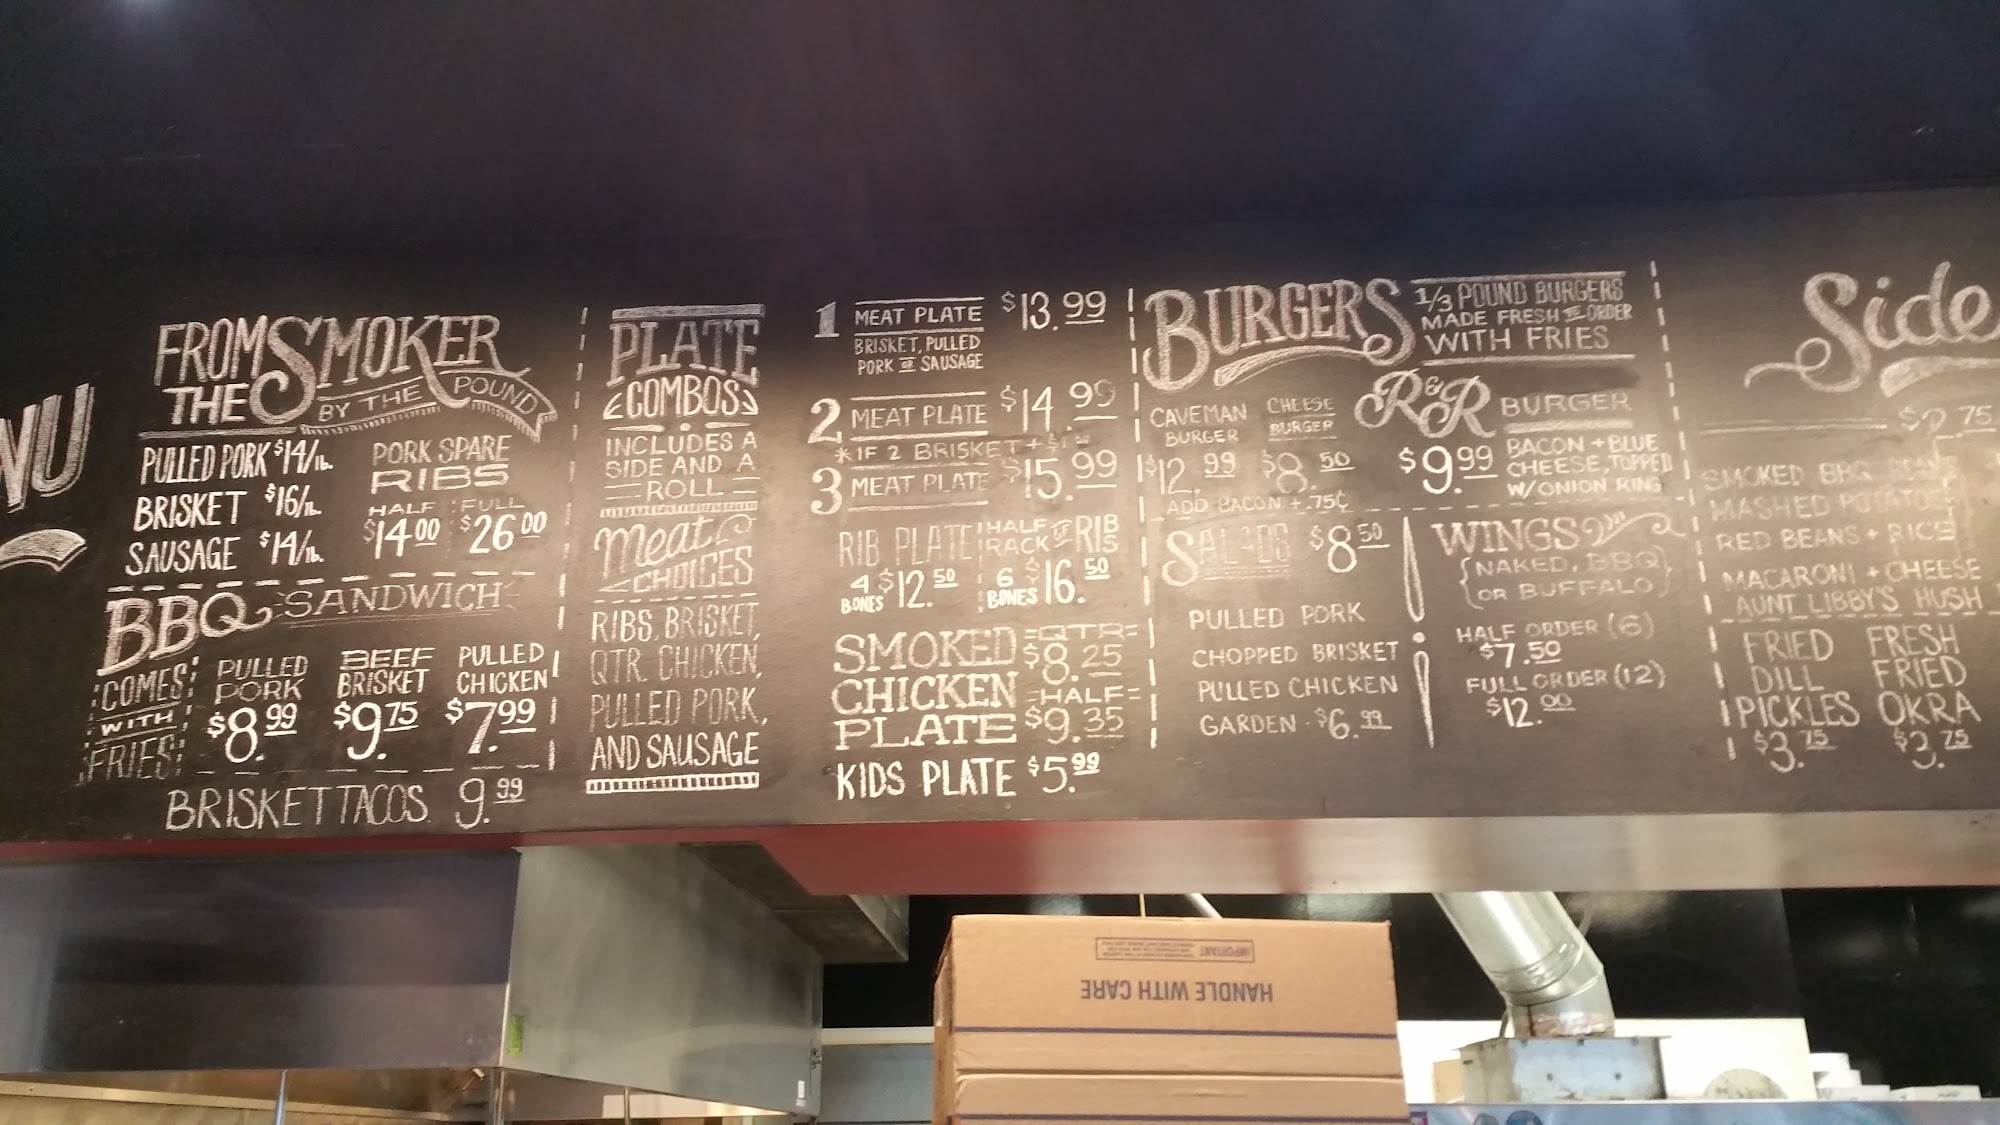 NU
FROM
THE SMOKER
BY THE POUND
PULLED PORK $14/lb.
BRISKET $16/lb.
SAUSAGE $14/lb.
PORK SPARE
RIBS
HALF FULL
$14.00 $26.00
BBQ SANDWICH
COMES
WITH
FRIES
PULLED
PORK
$8.99
BEEF
BRISKET
$9.75
PULLED
CHICKEN
$7.99
BRISKET TACOS 9.99
PLATE
COMBOS
INCLUDES A
SIDE AND A
ROLL
Meat
CHOICES
RIBS, BRISKET,
QTR. CHICKEN,
PULLED PORK,
AND SAUSAGE
1 MEAT PLATE $13.99
BRISKET, PULLED
PORK OR SAUSAGE
2 MEAT PLATE $14.99
*IF 2 BRISKET +
3 MEAT PLATE $15.99
RIB PLATE
4 BONES $12.50
HALF RACK OF RIBS
6 BONES $16.50
SMOKED
CHICKEN
PLATE
QTR
$8.25
HALF
$9.35
KIDS PLATE $5.99
BURGERS
1/3 POUND BURGERS
MADE FRESH TO ORDER
WITH FRIES
CAVEMAN
BURGER
$12.99
CHEESE
BURGER
$8.50
ADD BACON +.75¢
R&R BURGER
$9.99
BACON + BLUE
CHEESE, TOPPED
W/ONION RING
SALADS $8.50
PULLED PORK
CHOPPED BRISKET
PULLED CHICKEN
GARDEN - $6.99
WINGS
{NAKED, BBQ
OR BUFFALO}
HALF ORDER (6)
$7.50
FULL ORDER (12)
$12.00
Side
SMOKED BBQ BEANS
MASHED POTATOE
RED BEANS + RICE
MACARONI + CHEESE
AUNT LIBBY'S HUSH
FRIED
DILL
PICKLES
$3.75
FRESH
FRIED
OKRA
$3.75
IMPORTANT
HANDLE WITH CARE